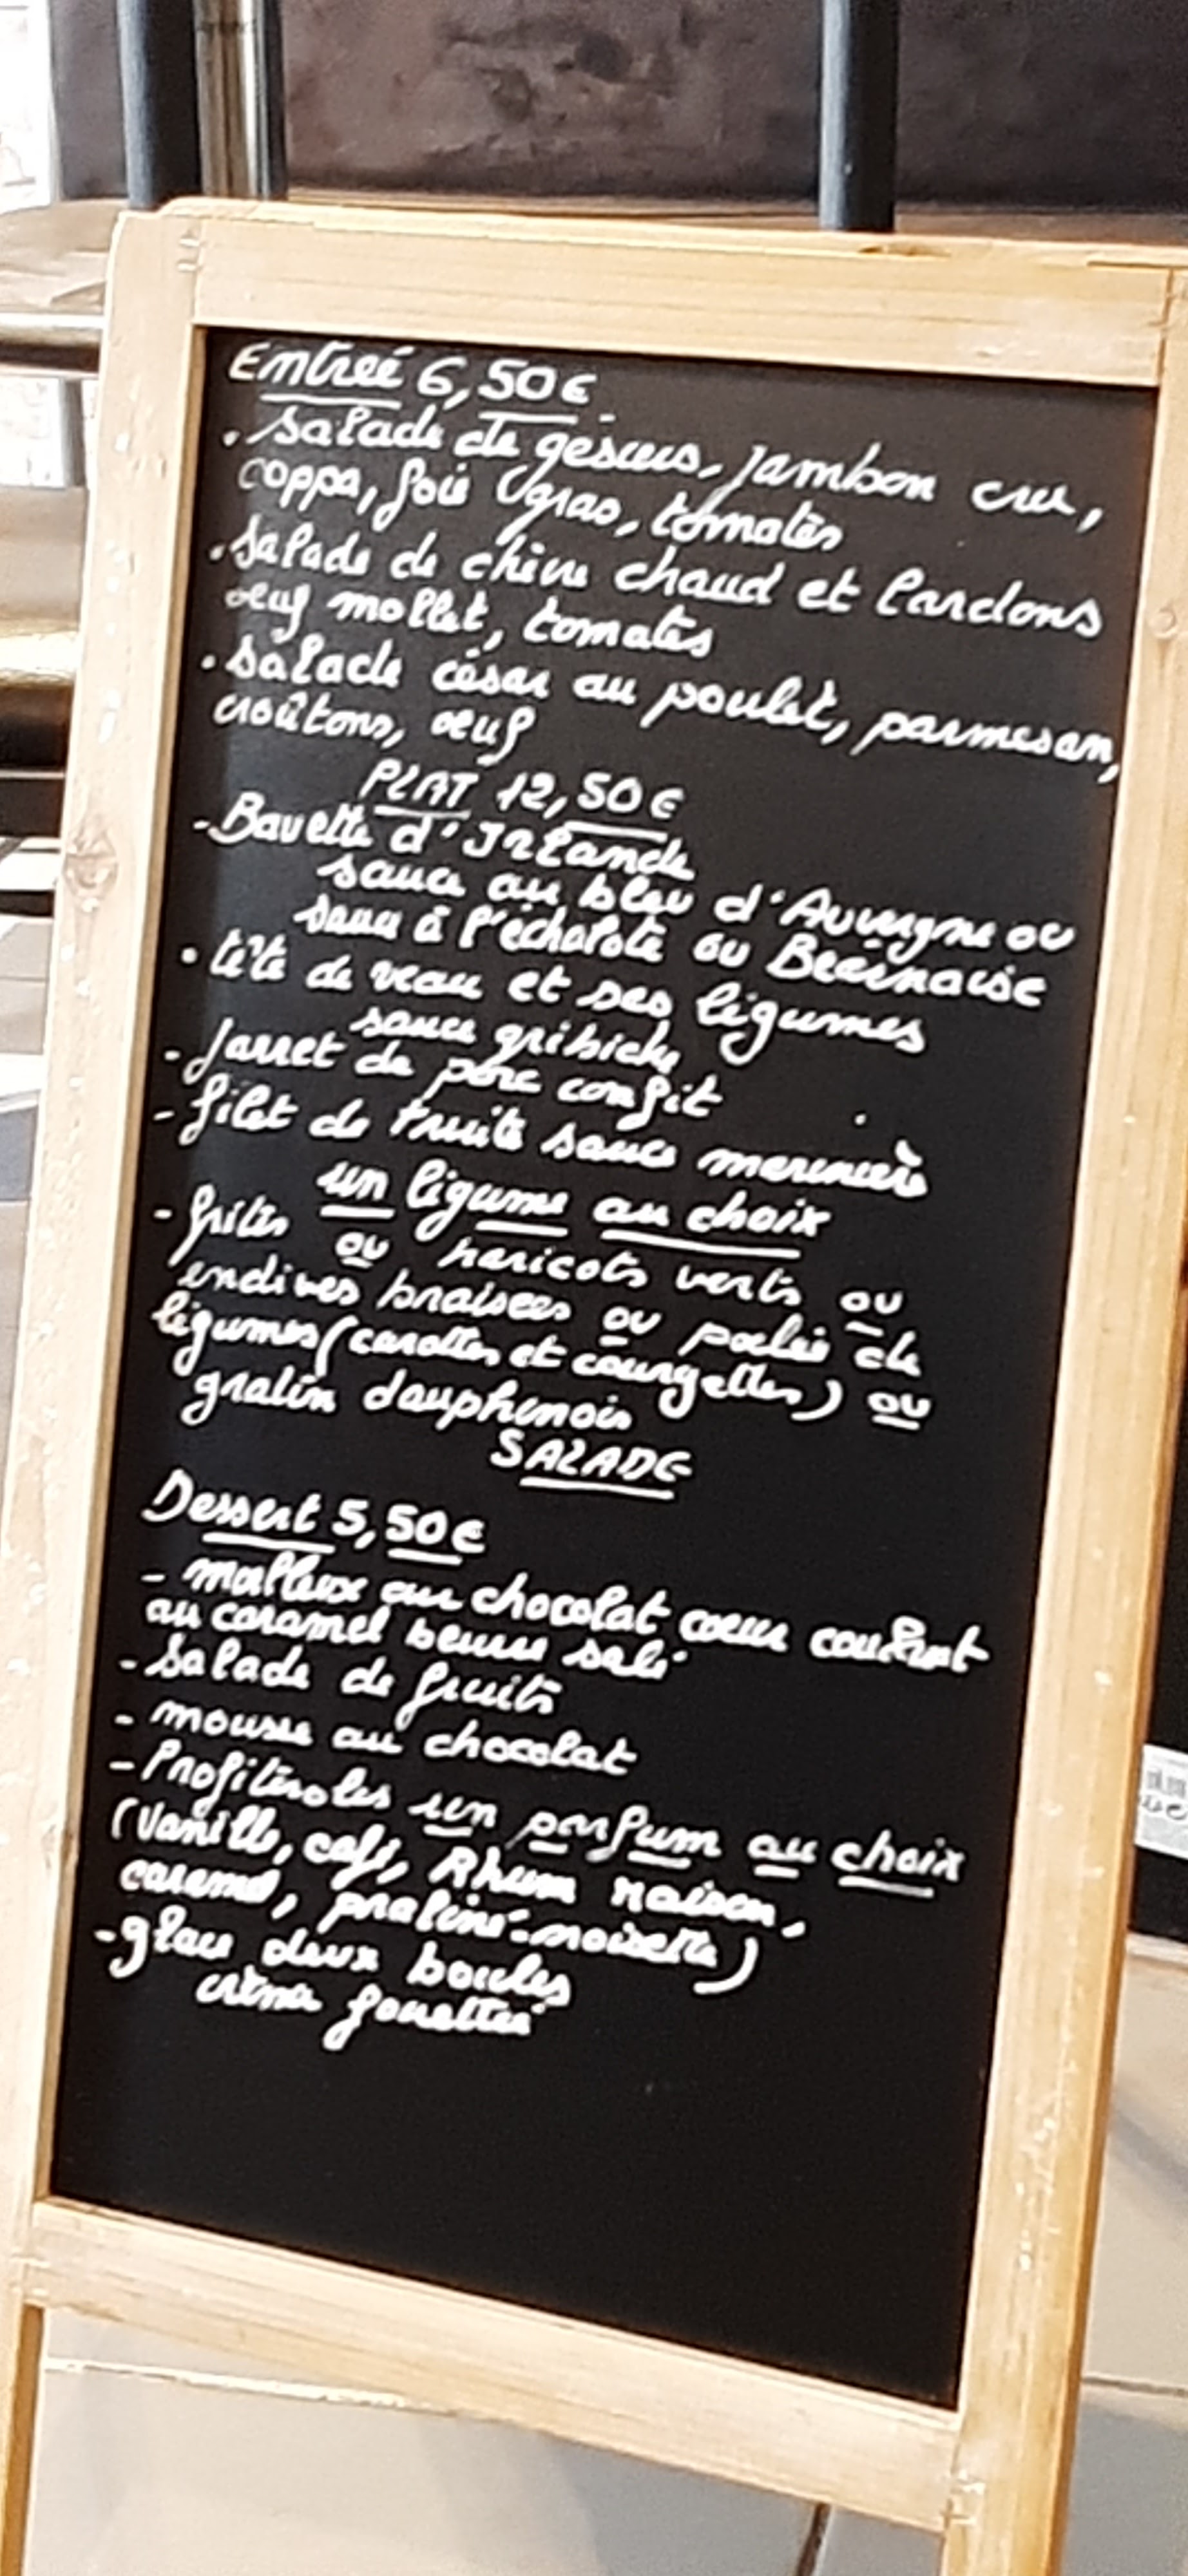 Entreé 6,50€
. Salade de gesiers, jambon cru,
coppa, foie gras, tomates
. Salade de chèvre chaud et lardons
œuf mollet, tomates
. Salade césar au poulet, parmesan,
croûtons, œuf
PLAT 12,50€
- Bavette d'Irlande
sauce au bleu d'Auvergne ou
sauce à l'échalote ou Béarnaise
. tête de veau et ses légumes
sauce gribiche
- Jarret de porc confit
- filet de truite sauce meunière
un légume au choix
- frites ou haricots verts ou
endives braisees ou poelée de
légumes (carottes et courgettes) ou
gratin dauphinois
SALADE
Dessert 5,50€
- moelleux au chocolat cœur coulant
au caramel beurre salé
- Salade de fruits
- mousse au chocolat
- Profiteroles un parfum au choix
(Vanille, café, Rhum raison,
caramel, praliné-noisette)
- glace deux boules
crème fouettée